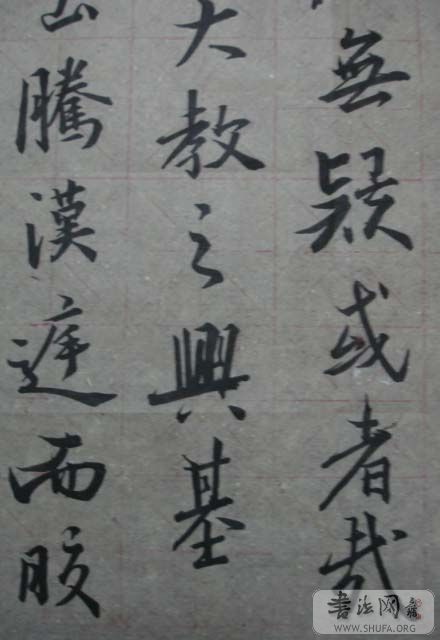 無疑或者哉
大教之興基
騰漢庭而皎
書法网
WWW.SHUFA.ORG